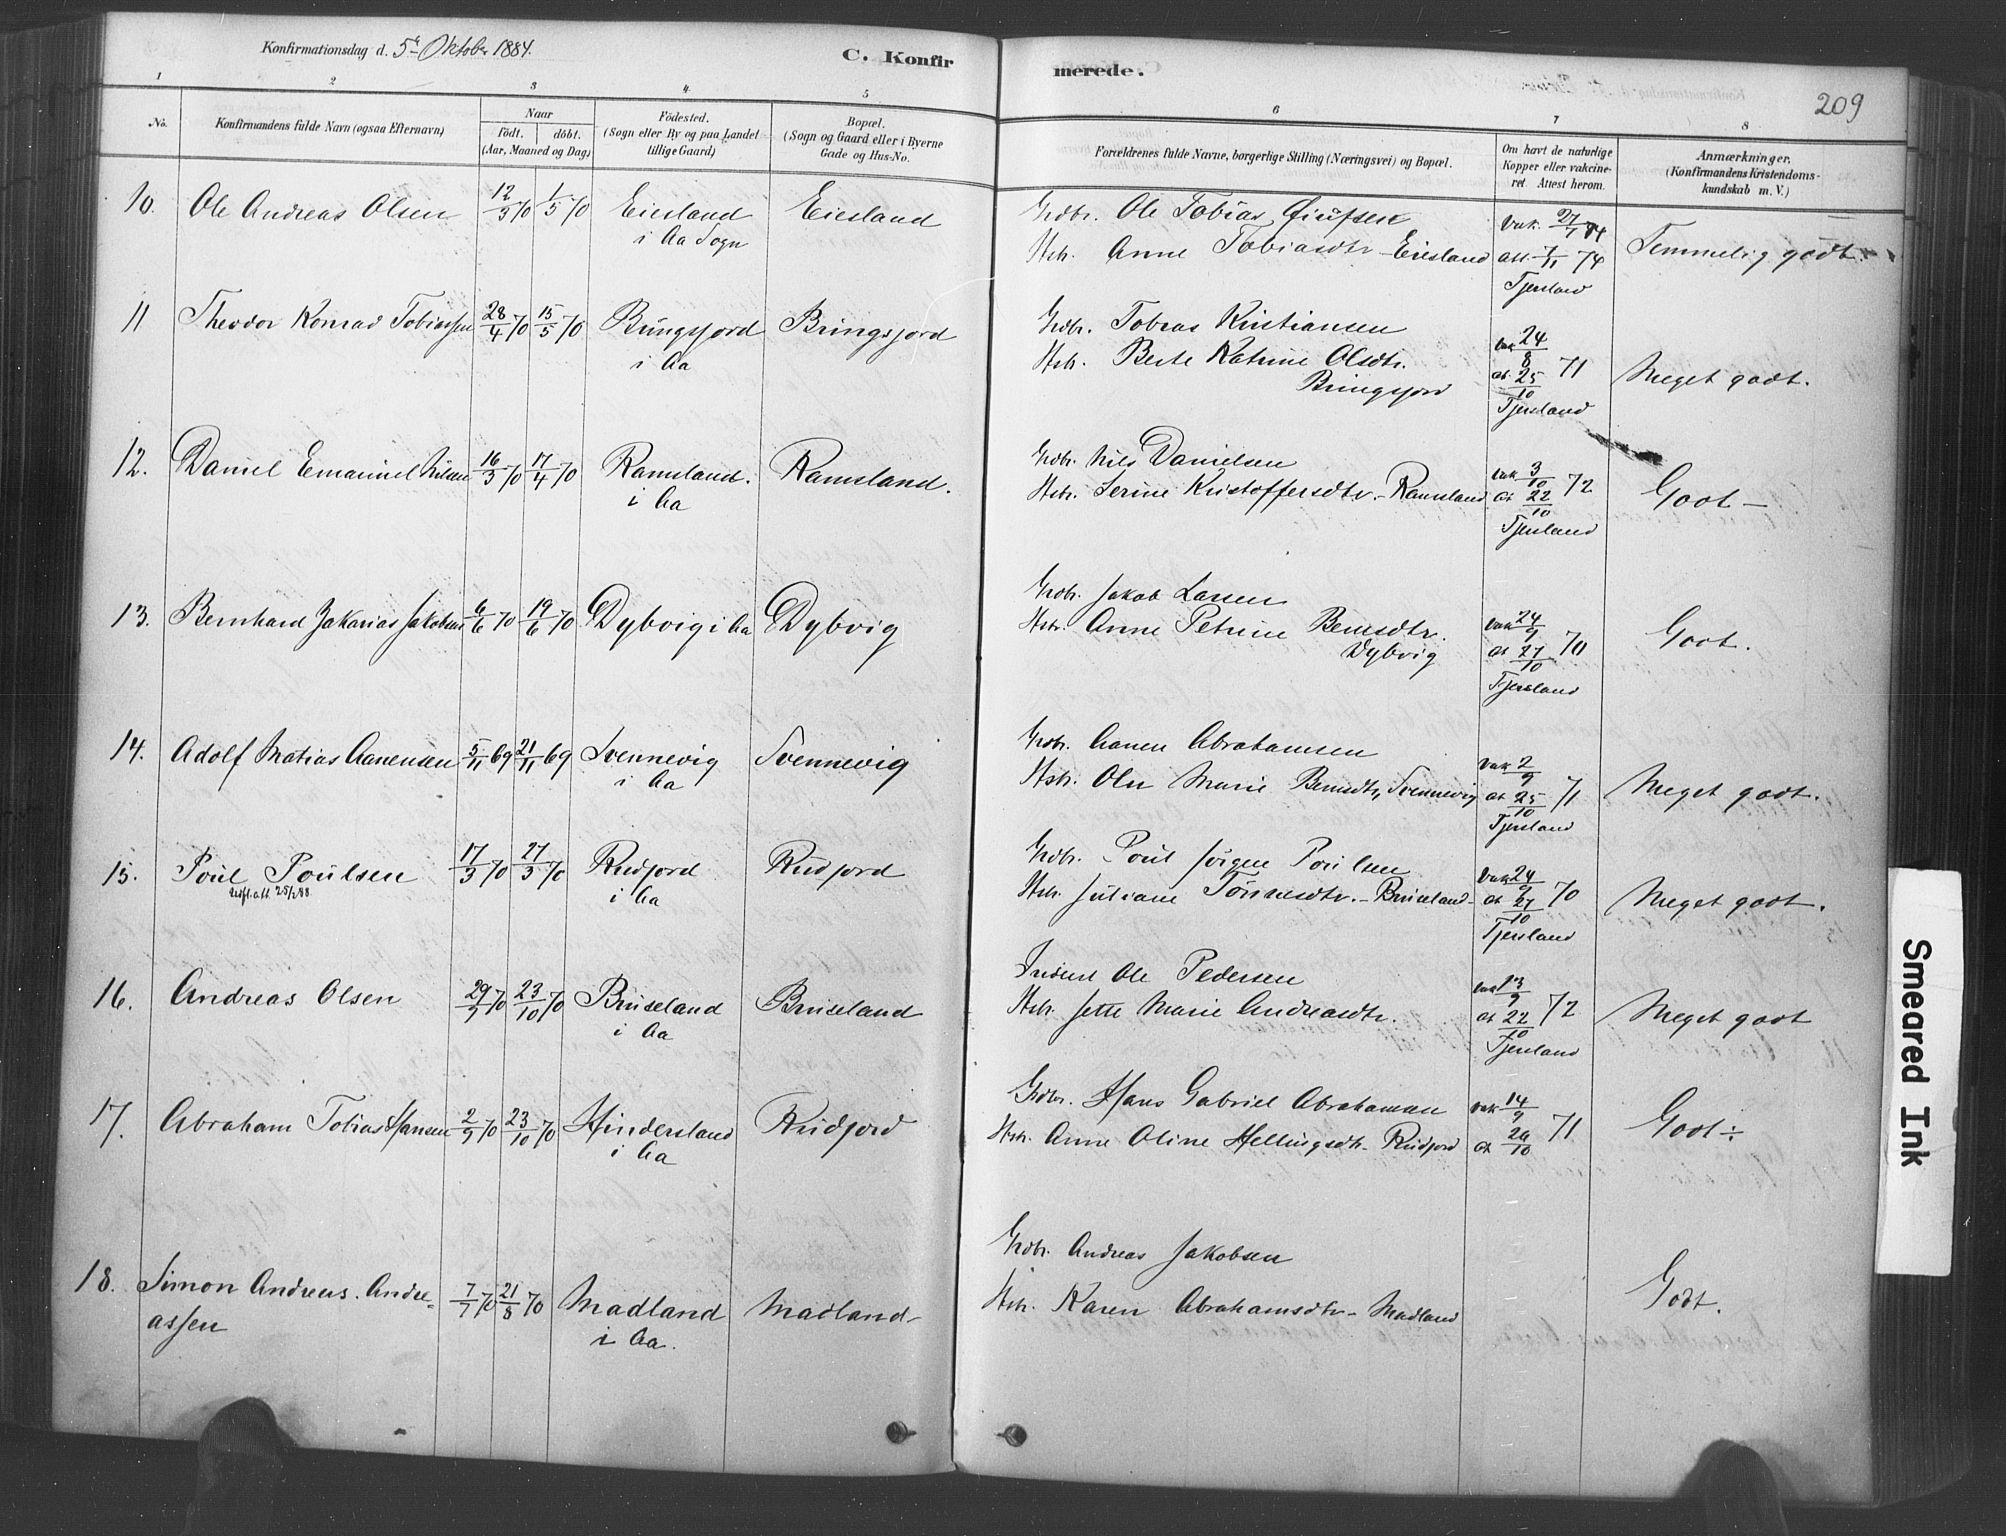 Konfirmationsdag d. 5te Oktober 1884.
C. Konfirmerede.
209
1 2 3 4 5 6 7 8
No.
Konfirmandens fulde Navn (ogsaa Efternavn)
Naar
födt. döbt.
(Aar, Maaned og Dag)
Födested.
(Sogn eller By og paa Landet
tillige Gaard)
Bopæl.
(Sogn og Gaard eller i Byerne
Gade og Hus-No.
Forældrenes fulde Navne, borgerlige Stilling (Næringsvei) og Bopæl.
Om havt de naturlige
Kopper eller vakcine-
ret. Attest herom.
Anmærkninger.
(Konfirmandens Kristendoms-
kundskab m. V.)
10. Ole Andreas Olsen 12/3 70 1/5 70 Eiesland Eiesland
i Aa Sogn
Grdbr. Ole Tobias
Hstr. Anne Tobiasdtr - Eiesland
Vak. 27/ 74
att. 1/11 74
Tjersland
Temmelig godt.
11 Theodor Konrad Tobiassen 28/4 70 15/5 70 Bringsjord Bringsjord
i Aa
Grdbr. Tobias Kristiansen
Hstr. Berte Katrine Olsdtr.
Bringsjord
Vak 24/8
at. 25/10 71
Tjersland
Meget godt.
12. Daniel Emanuel Nilsen 16/3 70 17/4 70 Ramsland. Ramsland.
i Aa
Grdbr. Nils Danielsen
Hstr. Serine Kristoffersdtr - Ramsland
Vak 3/10
at 22/10 72
Tjersland
Godt -
13. Bernhard Zakarias Jakobsen 6/6 70 19/6 70 Dybvig i Aa Dybvig
Grdbr. Jakob Larsen
Hstr. Anne Petrine Berntsdtr.
Dybvig
Vak 24/9
at 27/10 70
Tjersland
Godt.
14. Adolf Matias Aanensen 5/11 69 21/11 69 Svennevig Svennevig
i Aa
Grdbr. Aanen Abrahamsen
Hstr. Marie Berntsdtr, Svennevig
Vak 2/9
at 25/10 71
Tjersland
Meget godt.
15. Poul Poulsen 17/3 70 27/3 70 Rudjord Rudjord
Udfl. att. 25/1 88 i Aa
Grdbr. Poul Jörgen Poulsen
Hstr. Juliane Tönnesdtr. - Bruseland -
Vak 24/9
at 27/10 70
Tjersland
Meget godt.
16. Andreas Olsen 29/9 70 23/10 70 Bruseland Bruseland
i Aa
Inderst Ole Pedersen
Hstr. Jette Marie Andreasdtr.
Vak 13/9
at 22/10 72
Tjersland
Meget godt
17. Abraham Tobias Hansen 2/9 70 23/10 70 Hindersland Rudjord
i Aa
Grdbr. Hans Gabriel Abrahamsen
Hstr. Anne Oline Hellingsdtr - Rudjord
Vak 14/9
at /10 71
Godt ÷
18. Simon Andreas. Andre=
assen 7/7 70 21/8 70 Madland Madland -
i Aa.
Grdbr. Andreas Jakobsen
Hstr. Karen Abrahamsdtr - Madland
Godt.
Smeared Ink